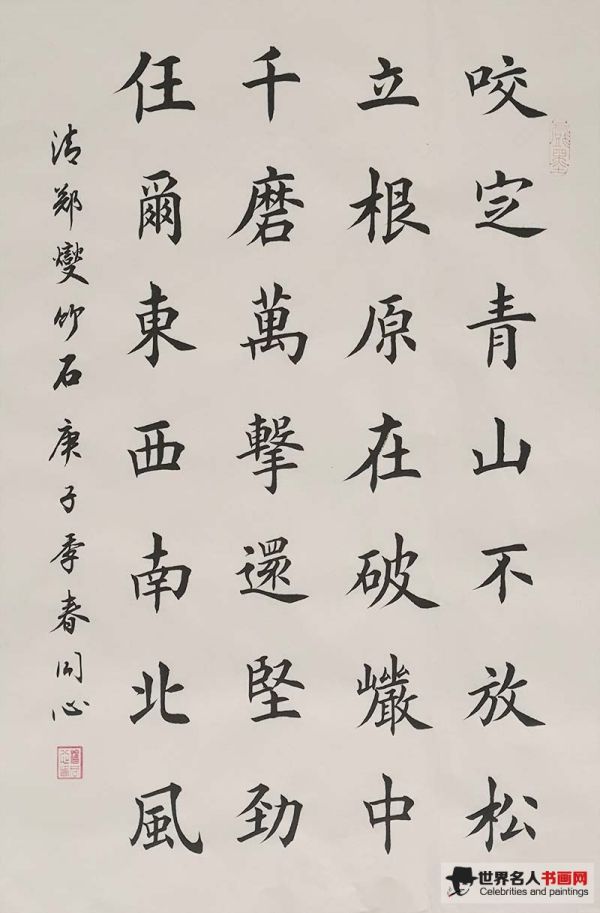 咬定青山不放松
立根原在破巖中
千磨萬擊還堅勁
任爾東西南北風
清郑燮竹石庚子季春同心
世界名人书画网
Celebrities and paintings